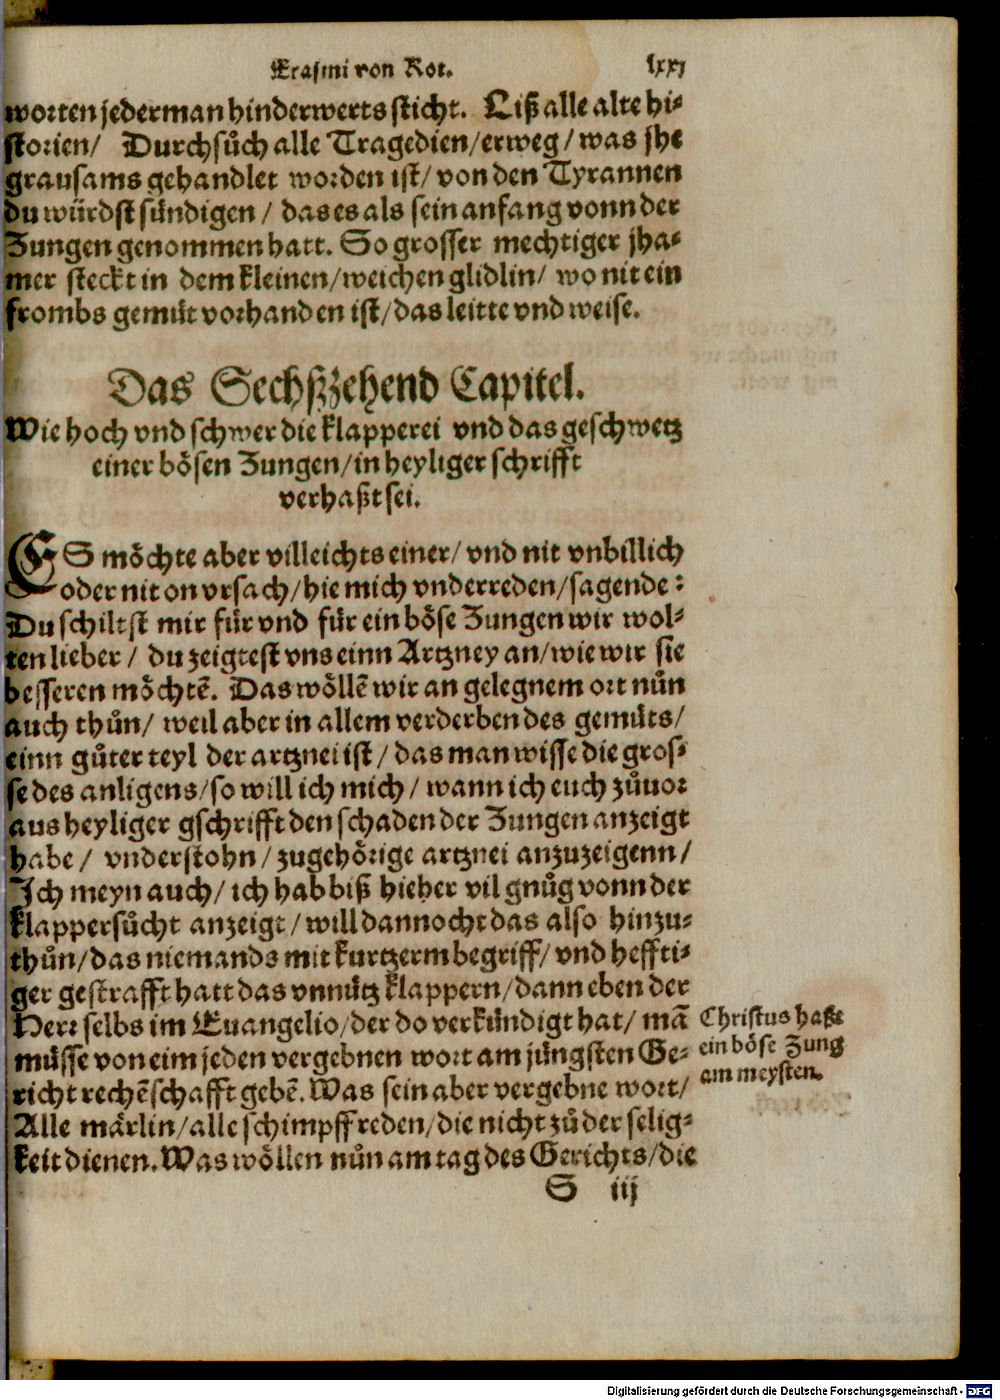 Erasmi von Rot. lxxj
worten jederman hinderwerts sticht. Liß alle alte hi⸗
storien/ Durchsůch alle Tragedien/erweg/was jhe
grausams gehandlet worden ist/von den Tyrannen
du würdst fündigen/ das es als sein anfang vonn der
Zungen genommen hatt. So grosser mechtiger jha⸗
mer steckt in dem kleinen/weichen glidlin/ wo nit ein
frombs gemüt vorhanden ist/das leitte vnd weise.
Das Sechßzehend Capitel.
Wie hoch vnd schwer die klapperei vnd das geschwetz
einer bösen Zungen/in heyliger schrifft
verhaßt sei.
ES möchte aber villeicht einer/vnd nit vnbillich
oder nit on vrsach/hie mich vnderreden/sagende:
Du schiltst mir für vnd für ein böse Zungen wir wol⸗
ten lieber/ du zeigtest vns einn Artzney an/wie wir sie
besseren möchtē. Das wöllē wir an gelegnem ort nůn
auch thůn/ weil aber in allem verderben des gemüts/
einn gůter teyl der artznei ist/das man wisse die gros⸗
se des anligens/so will ich mich/wann ich euch zůuor
aus heyliger gschrifft den schaden der Zungen anzeigt
habe/ vnderstohn/zugehörige artznei anzuzeigenn/
Ich meyn auch/ich hab biß hieher vil gnůg vonn der
klappersůcht anzeigt/will dannocht das also hinzu⸗
thůn/das niemands mit kurtzerm begriff/vnd heffti⸗
ger gestrafft hatt das vnnütz klappern/dann eben der
Herr selbs im Euangelio/der do verkündigt hat/ mā
müsse von eim jeden vergebnen wort am jüngsten Ge⸗
richt rechēschafft gebē. Was sein aber vergebne wort/
Alle märlin/alle schimpffreden/die nicht zů der selig⸗
keit dienen. Was wöllen nůn am tag des Gerichts/die
Christus haßt
ein böse Zung
am meysten.
S iij
Digitalisierung gefördert durch die Deutsche Forschungsgemeinschaft - DFG